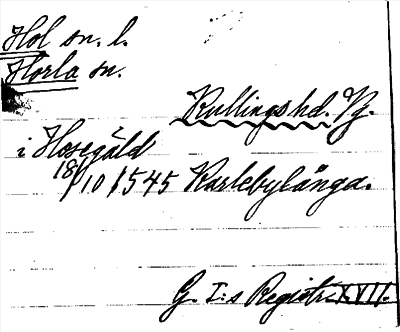 Hol sn. l.
Horla sn.
Kullings hd. Vg.
i Hosegäld
18/10 1545 Karlebylånga.
G. I:s Registr. XVII.